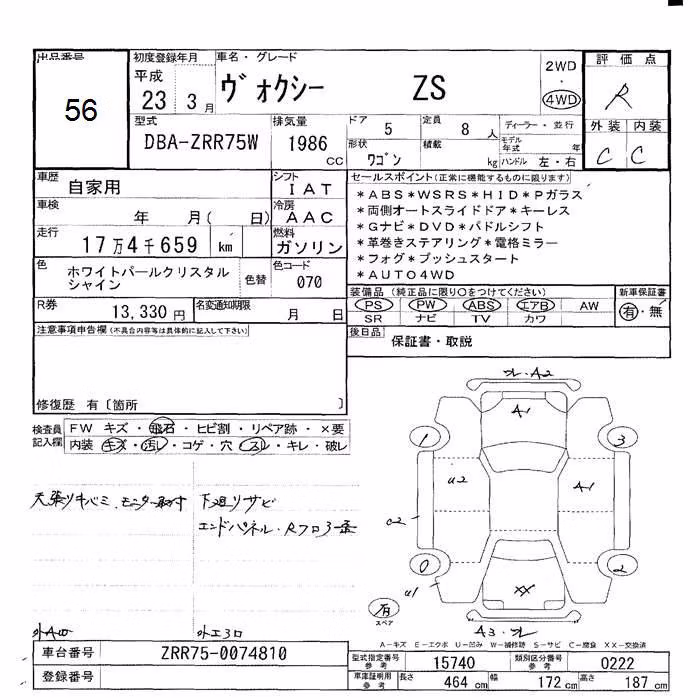 出品番号
56
初度登録年月
平成
23 3月
車名・グレード
ヴォクシー ZS
2WD
・
4WD
評価点
R
外装 内装
C C
型式
DBA-ZRR75W
排気量
1986
CC
ドア 5
定員 8 人
ディーラー・並行
形状
ワゴン
積載
kg
モデル年式 年
ハンドル 左・右
車歴
自家用
シフト
IAT
車検
年 月( 日)
冷房
AAC
走行
17万4千659 km
燃料
ガソリン
色
ホワイトパールクリスタル
シャイン
色替
色コード
070
R券
13,330 円
名変通知期限
月 日
セールスポイント(正常に機能するものに限ります)
*ABS*WSRS*HID*Pガラス
*両側オートスライドドア*キーレス
*Gナビ*DVD*パドルシフト
*革巻きステアリング*電格ミラー
*フォグ*プッシュスタート
*AUTO4WD
装備品(純正品に限り○をつけてください)
PS PW ABS エアB AW
SR ナビ TV カワ
新車保証書
有・無
後日品
保証書・取説
注意事項申告欄(不具合内容等は具体的に記入して下さい)
修復歴 有〔箇所 〕
検査員
記入欄
FW キズ・飛石・ヒビ割・リペア跡・×要
内装 キズ・汚レ・コゲ・穴・スレ・キレ・破レ
天張りキバミ、モニター取付
下廻りサビ
エンドパネル・Rフロ
オレ・A2
A1
1
3
U2
A1
C2
0
2
U1
XX
有
スペア
A3・オレ
A-キズ E-エクボ U-凹み W-補修跡 S-サビ C-腐食 XX-交換済
車台番号
ZRR75-0074810
登録番号
型式指定番号
参考
15740
類別区分番号
参考
0222
車庫証明用
参考
長さ 464 cm 幅 172 cm 高さ 187 cm